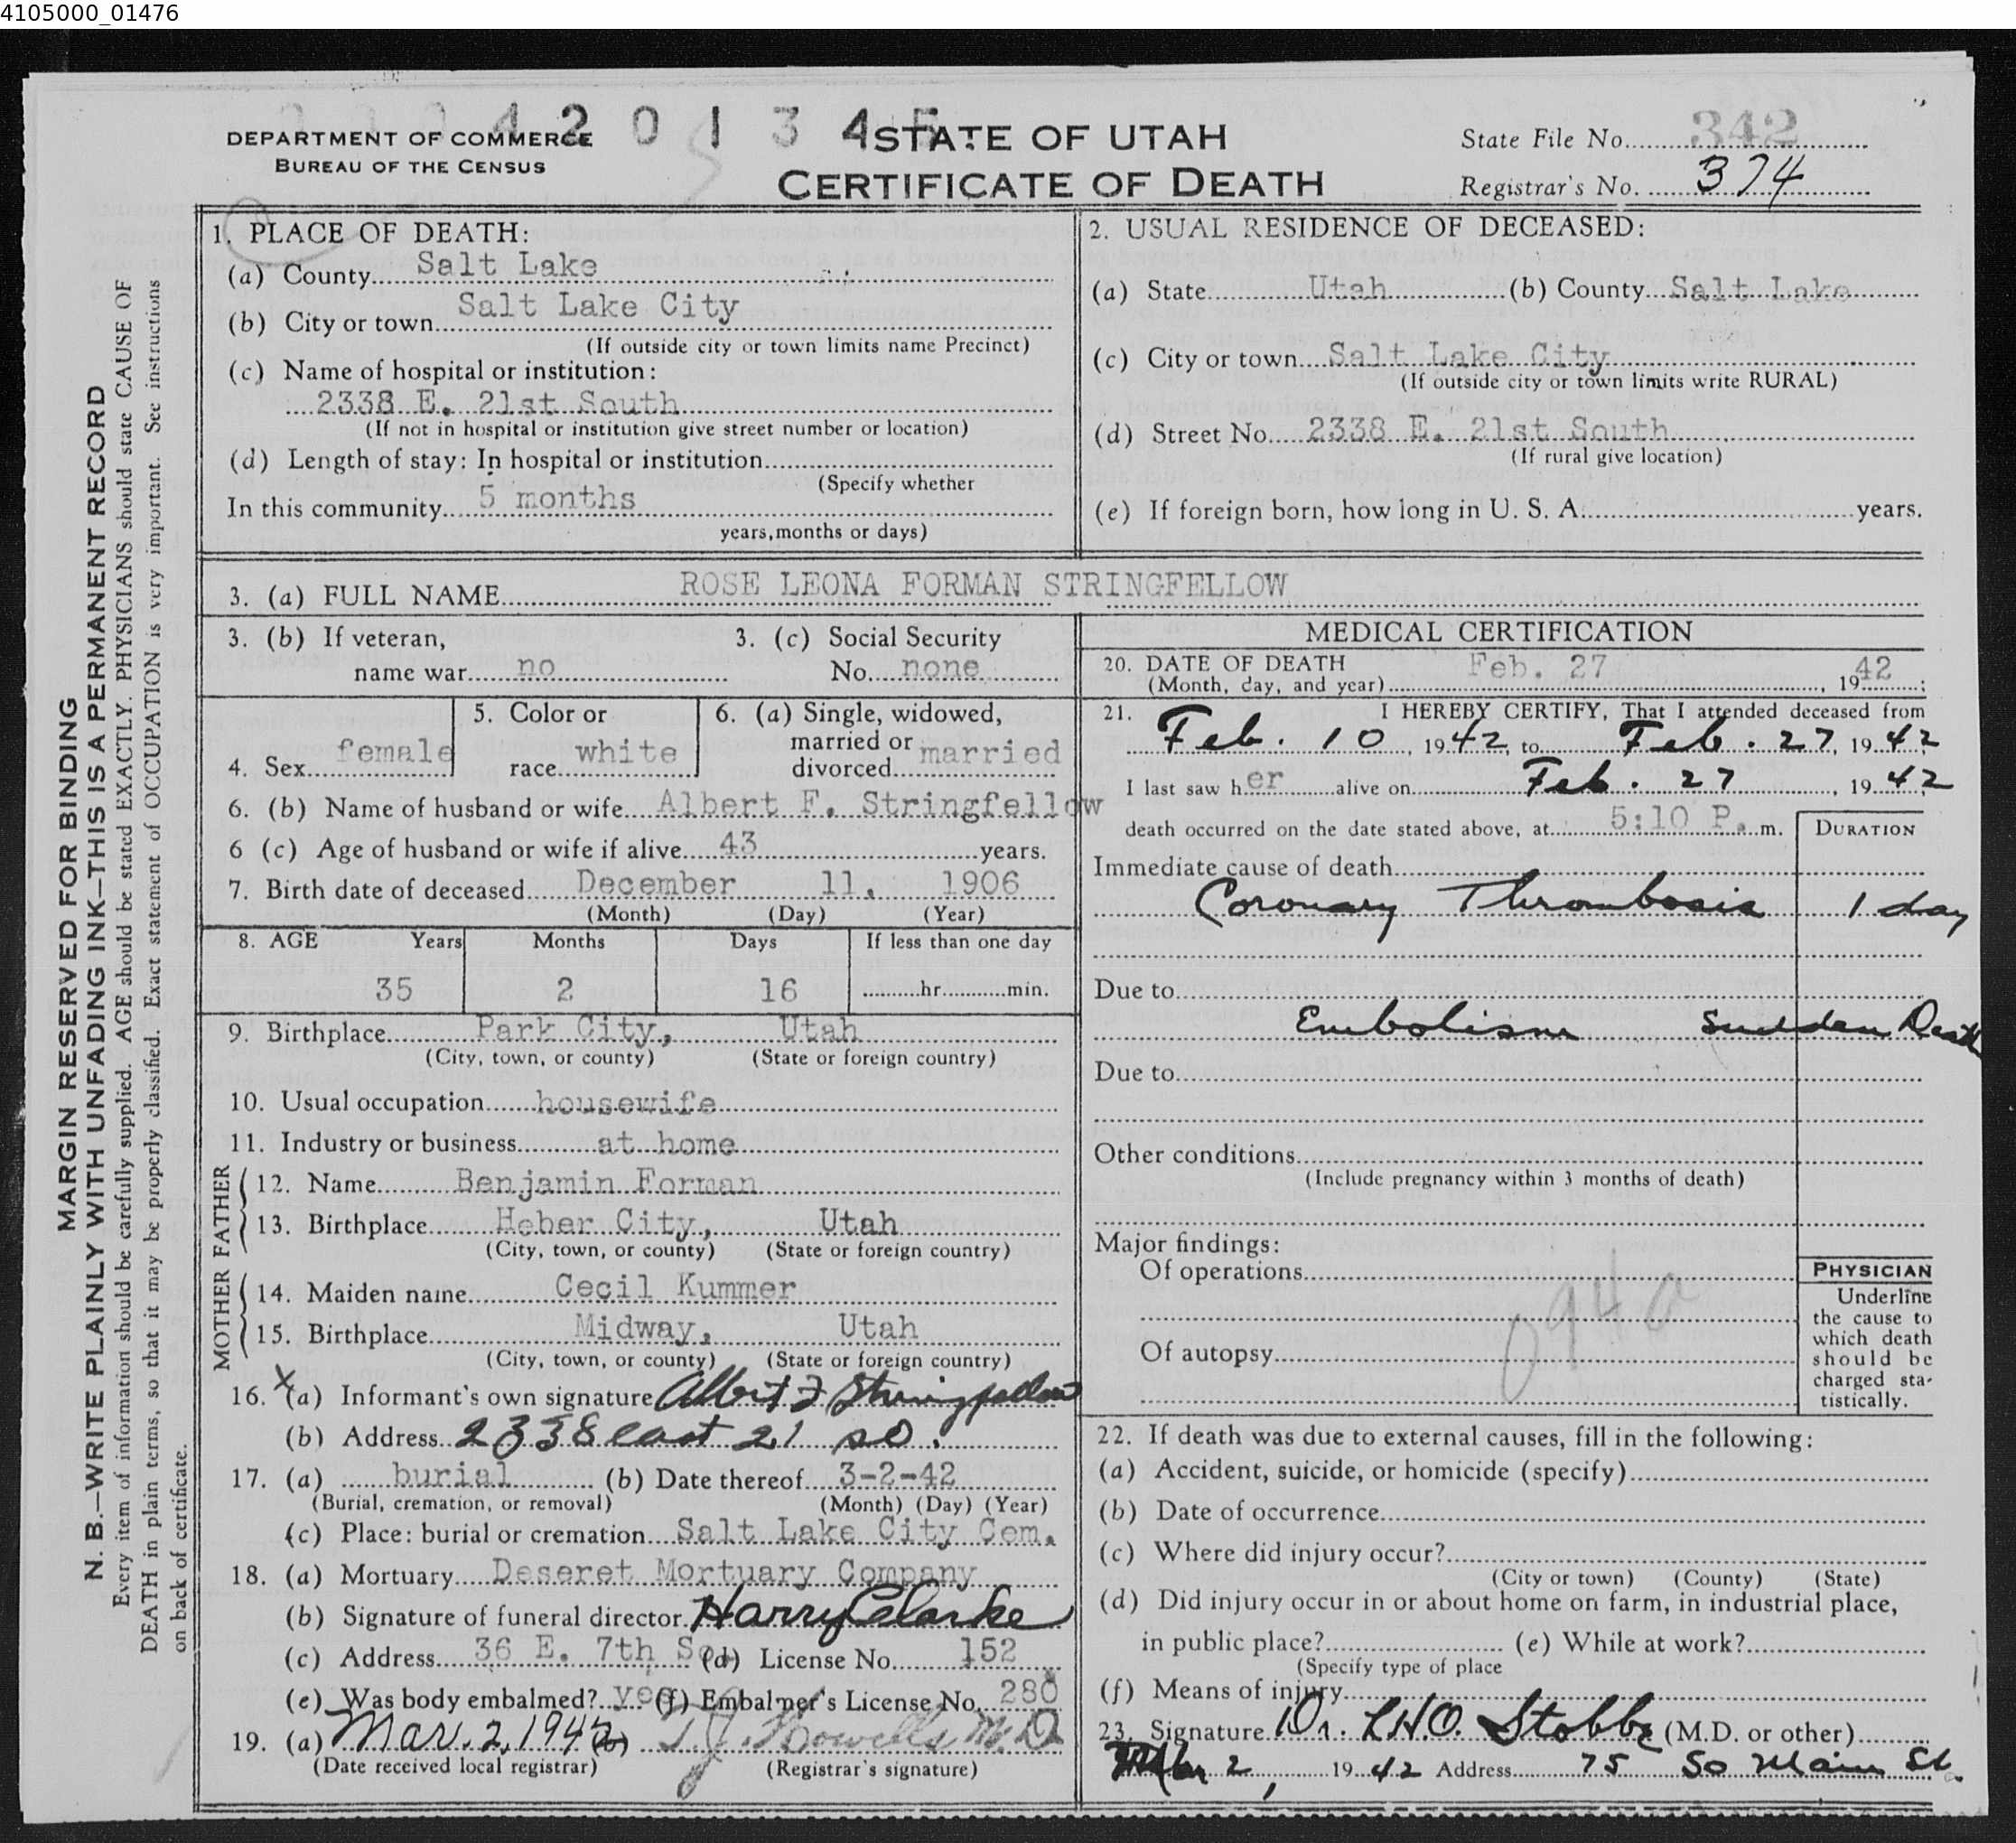 4105000_01476
4 2 0 1 3 4 5
DEPARTMENT OF COMMERCE
BUREAU OF THE CENSUS
STATE OF UTAH
CERTIFICATE OF DEATH
State File No. 342
Registrar's No. 374
MARGIN RESERVED FOR BINDING
N. B.—WRITE PLAINLY WITH UNFADING INK—THIS IS A PERMANENT RECORD
Every item of information should be carefully supplied. AGE should be stated EXACTLY. PHYSICIANS should state CAUSE OF
DEATH in plain terms, so that it may be properly classified. Exact statement of OCCUPATION is very important. See instructions
on back of certificate.
1. PLACE OF DEATH:
(a) County Salt Lake
(b) City or town Salt Lake City
(If outside city or town limits name Precinct)
(c) Name of hospital or institution:
2338 E. 21st South
(If not in hospital or institution give street number or location)
(d) Length of stay: In hospital or institution
(Specify whether
In this community 5 months
years, months or days)
2. USUAL RESIDENCE OF DECEASED:
(a) State Utah (b) County Salt Lake
(c) City or town Salt Lake City
(If outside city or town limits write RURAL)
(d) Street No. 2338 E. 21st South
(If rural give location)
(e) If foreign born, how long in U. S. A. years.
3. (a) FULL NAME ROSE LEONA FORMAN STRINGFELLOW
3. (b) If veteran,
name war no
3. (c) Social Security
No. none
4. Sex female
5. Color or
race white
6. (a) Single, widowed,
married or
divorced married
6. (b) Name of husband or wife Albert F. Stringfellow
6 (c) Age of husband or wife if alive 43 years.
7. Birth date of deceased December 11, 1906
(Month) (Day) (Year)
8. AGE Years Months Days If less than one day
35 2 16 hr. min.
9. Birthplace Park City, Utah
(City, town, or county) (State or foreign country)
10. Usual occupation housewife
11. Industry or business at home
FATHER
12. Name Benjamin Forman
13. Birthplace Heber City, Utah
(City, town, or county) (State or foreign country)
MOTHER
14. Maiden name Cecil Kummer
15. Birthplace Midway, Utah
(City, town, or county) (State or foreign country)
16. X (a) Informant's own signature Albert F Stringfellow
(b) Address 2338 east 21 so.
17. (a) burial (b) Date thereof 3-2-42
(Burial, cremation, or removal) (Month) (Day) (Year)
(c) Place: burial or cremation Salt Lake City Cem.
18. (a) Mortuary Deseret Mortuary Company
(b) Signature of funeral director Harry Clarke
(c) Address 36 E. 7th So. (d) License No. 152
(e) Was body embalmed? yes (f) Embalmer's License No. 280
19. (a) Mar. 2, 1942 (b) T. J. Howells M.D.
(Date received local registrar) (Registrar's signature)
MEDICAL CERTIFICATION
20. DATE OF DEATH
(Month, day, and year) Feb. 27, 1942;
21. I HEREBY CERTIFY, That I attended deceased from
Feb. 10, 1942, to Feb. 27, 1942
I last saw her alive on Feb. 27, 1942
death occurred on the date stated above, at 5:10 P. m.
DURATION
Immediate cause of death
Coronary Thrombosis 1 day
Due to
Embolism Sudden Death
Due to
Other conditions
(Include pregnancy within 3 months of death)
Major findings:
Of operations
094a
Of autopsy
PHYSICIAN
Underline
the cause to
which death
should be
charged sta-
tistically.
22. If death was due to external causes, fill in the following:
(a) Accident, suicide, or homicide (specify)
(b) Date of occurrence
(c) Where did injury occur?
(City or town) (County) (State)
(d) Did injury occur in or about home on farm, in industrial place,
in public place? (e) While at work?
(Specify type of place
(f) Means of injury
23. Signature Dr. L.H.O. Stobbe (M.D. or other)
Mar 2, 1942 Address 75 So Main St.